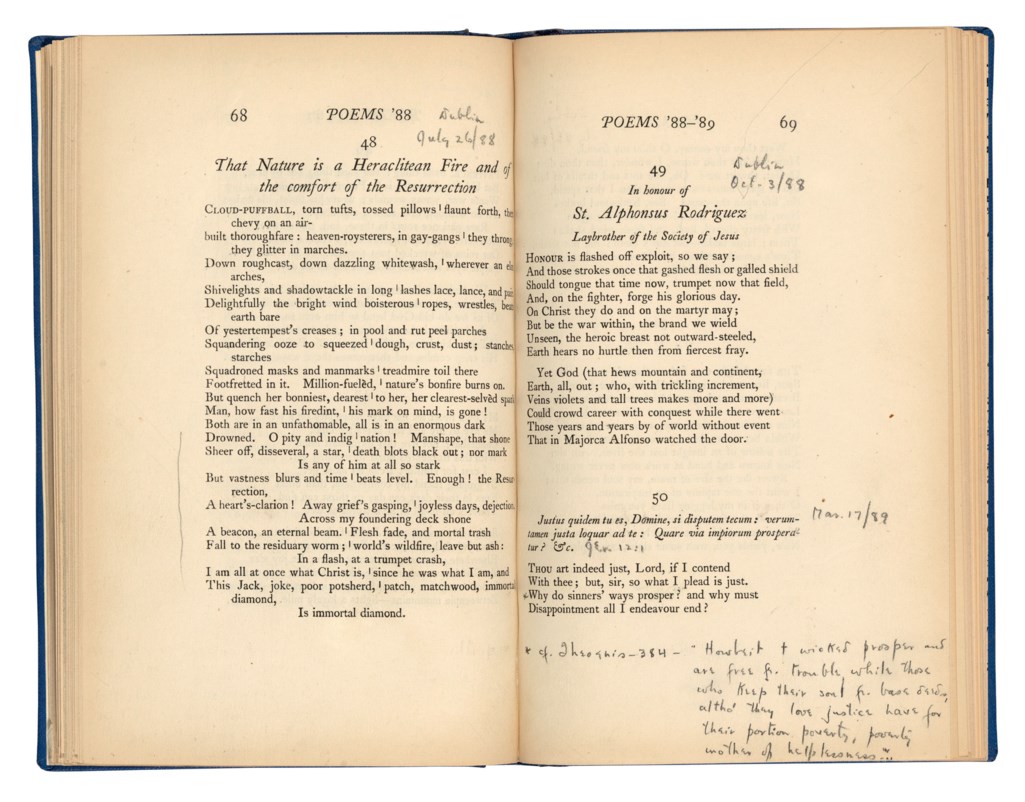 68 POEMS '88 Dublin
July 26/88
48
That Nature is a Heraclitean Fire and of
the comfort of the Resurrection
CLOUD-PUFFBALL, torn tufts, tossed pillows ˈ flaunt forth, then
chevy on an air-
built thoroughfare : heaven-roysterers, in gay-gangs ˈ they throng
they glitter in marches.
Down roughcast, down dazzling whitewash, ˈ wherever an elm
arches,
Shivelights and shadowtackle in long ˈ lashes lace, lance, and pair
Delightfully the bright wind boisterous ˈ ropes, wrestles, beats
earth bare
Of yestertempest's creases ; in pool and rut peel parches
Squandering ooze to squeezed ˈ dough, crust, dust ; stanches
starches
Squadroned masks and manmarks ˈ treadmire toil there
Footfretted in it. Million-fuelèd, ˈ nature's bonfire burns on.
But quench her bonniest, dearest ˈ to her, her clearest-selvèd spark
Man, how fast his firedint, ˈ his mark on mind, is gone !
Both are in an unfathomable, all is in an enormous dark
Drowned. O pity and indig ˈ nation ! Manshape, that shone
Sheer off, disseveral, a star, ˈ death blots black out ; nor mark
Is any of him at all so stark
But vastness blurs and time ˈ beats level. Enough ! the Resur
rection,
A heart's-clarion ! Away grief's gasping, ˈ joyless days, dejection
Across my foundering deck shone
A beacon, an eternal beam. ˈ Flesh fade, and mortal trash
Fall to the residuary worm ; ˈ world's wildfire, leave but ash :
In a flash, at a trumpet crash,
I am all at once what Christ is, ˈ since he was what I am, and
This Jack, joke, poor potsherd, ˈ patch, matchwood, immortal
diamond,
Is immortal diamond.
POEMS '88–'89 69
Dublin
Oct. 3/88
49
In honour of
St. Alphonsus Rodriguez
Laybrother of the Society of Jesus
HONOUR is flashed off exploit, so we say ;
And those strokes once that gashed flesh or galled shield
Should tongue that time now, trumpet now that field,
And, on the fighter, forge his glorious day.
On Christ they do and on the martyr may ;
But be the war within, the brand we wield
Unseen, the heroic breast not outward-steeled,
Earth hears no hurtle then from fiercest fray.
Yet God (that hews mountain and continent,
Earth, all, out ; who, with trickling increment,
Veins violets and tall trees makes more and more)
Could crowd career with conquest while there went
Those years and years by of world without event
That in Majorca Alfonso watched the door.
50
Mar. 17/89
Justus quidem tu es, Domine, si disputem tecum : verum-
tamen justa loquar ad te : Quare via impiorum prospera-
tur ? &c. Jer. 12:1
THOU art indeed just, Lord, if I contend
With thee ; but, sir, so what I plead is just.
*Why do sinners' ways prosper ? and why must
Disappointment all I endeavour end ?
* cf. Theognis – 384 – " Howbeit † wicked prosper and
are free fr. trouble while those
who keep their soul fr. base deeds,
altho' they love justice have for
their portion poverty, poverty
mother of helplessness."